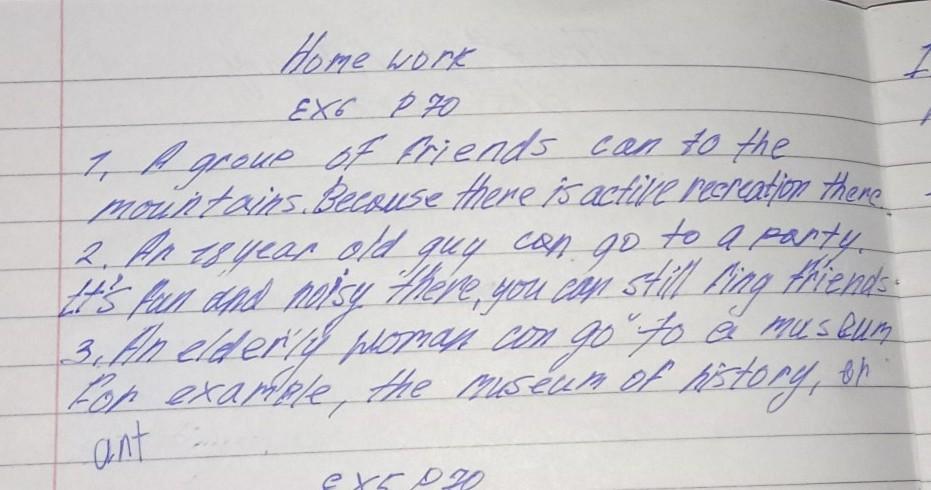 Home work
EX6 P 70
1, A groue of friends can to the
mountains. Because there is active recreation there
2. An 18 year old guy can go to a party.
It's fun and noisy there, you can still fing friends.
3. An elderly woman can go to a museum
For example, the museum of history, or
ant
ex5 p 70